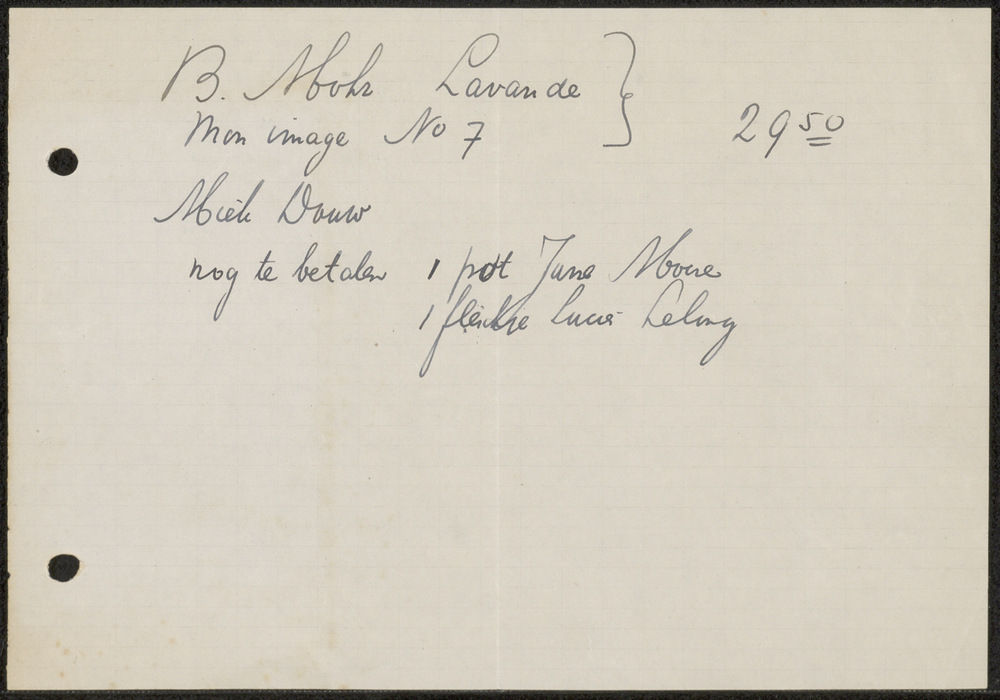 B. Mohr Lavande } 29 50
Mon image No 7
Miek Douw
nog te betalen 1 pot June Moore
1 flesje Lucie